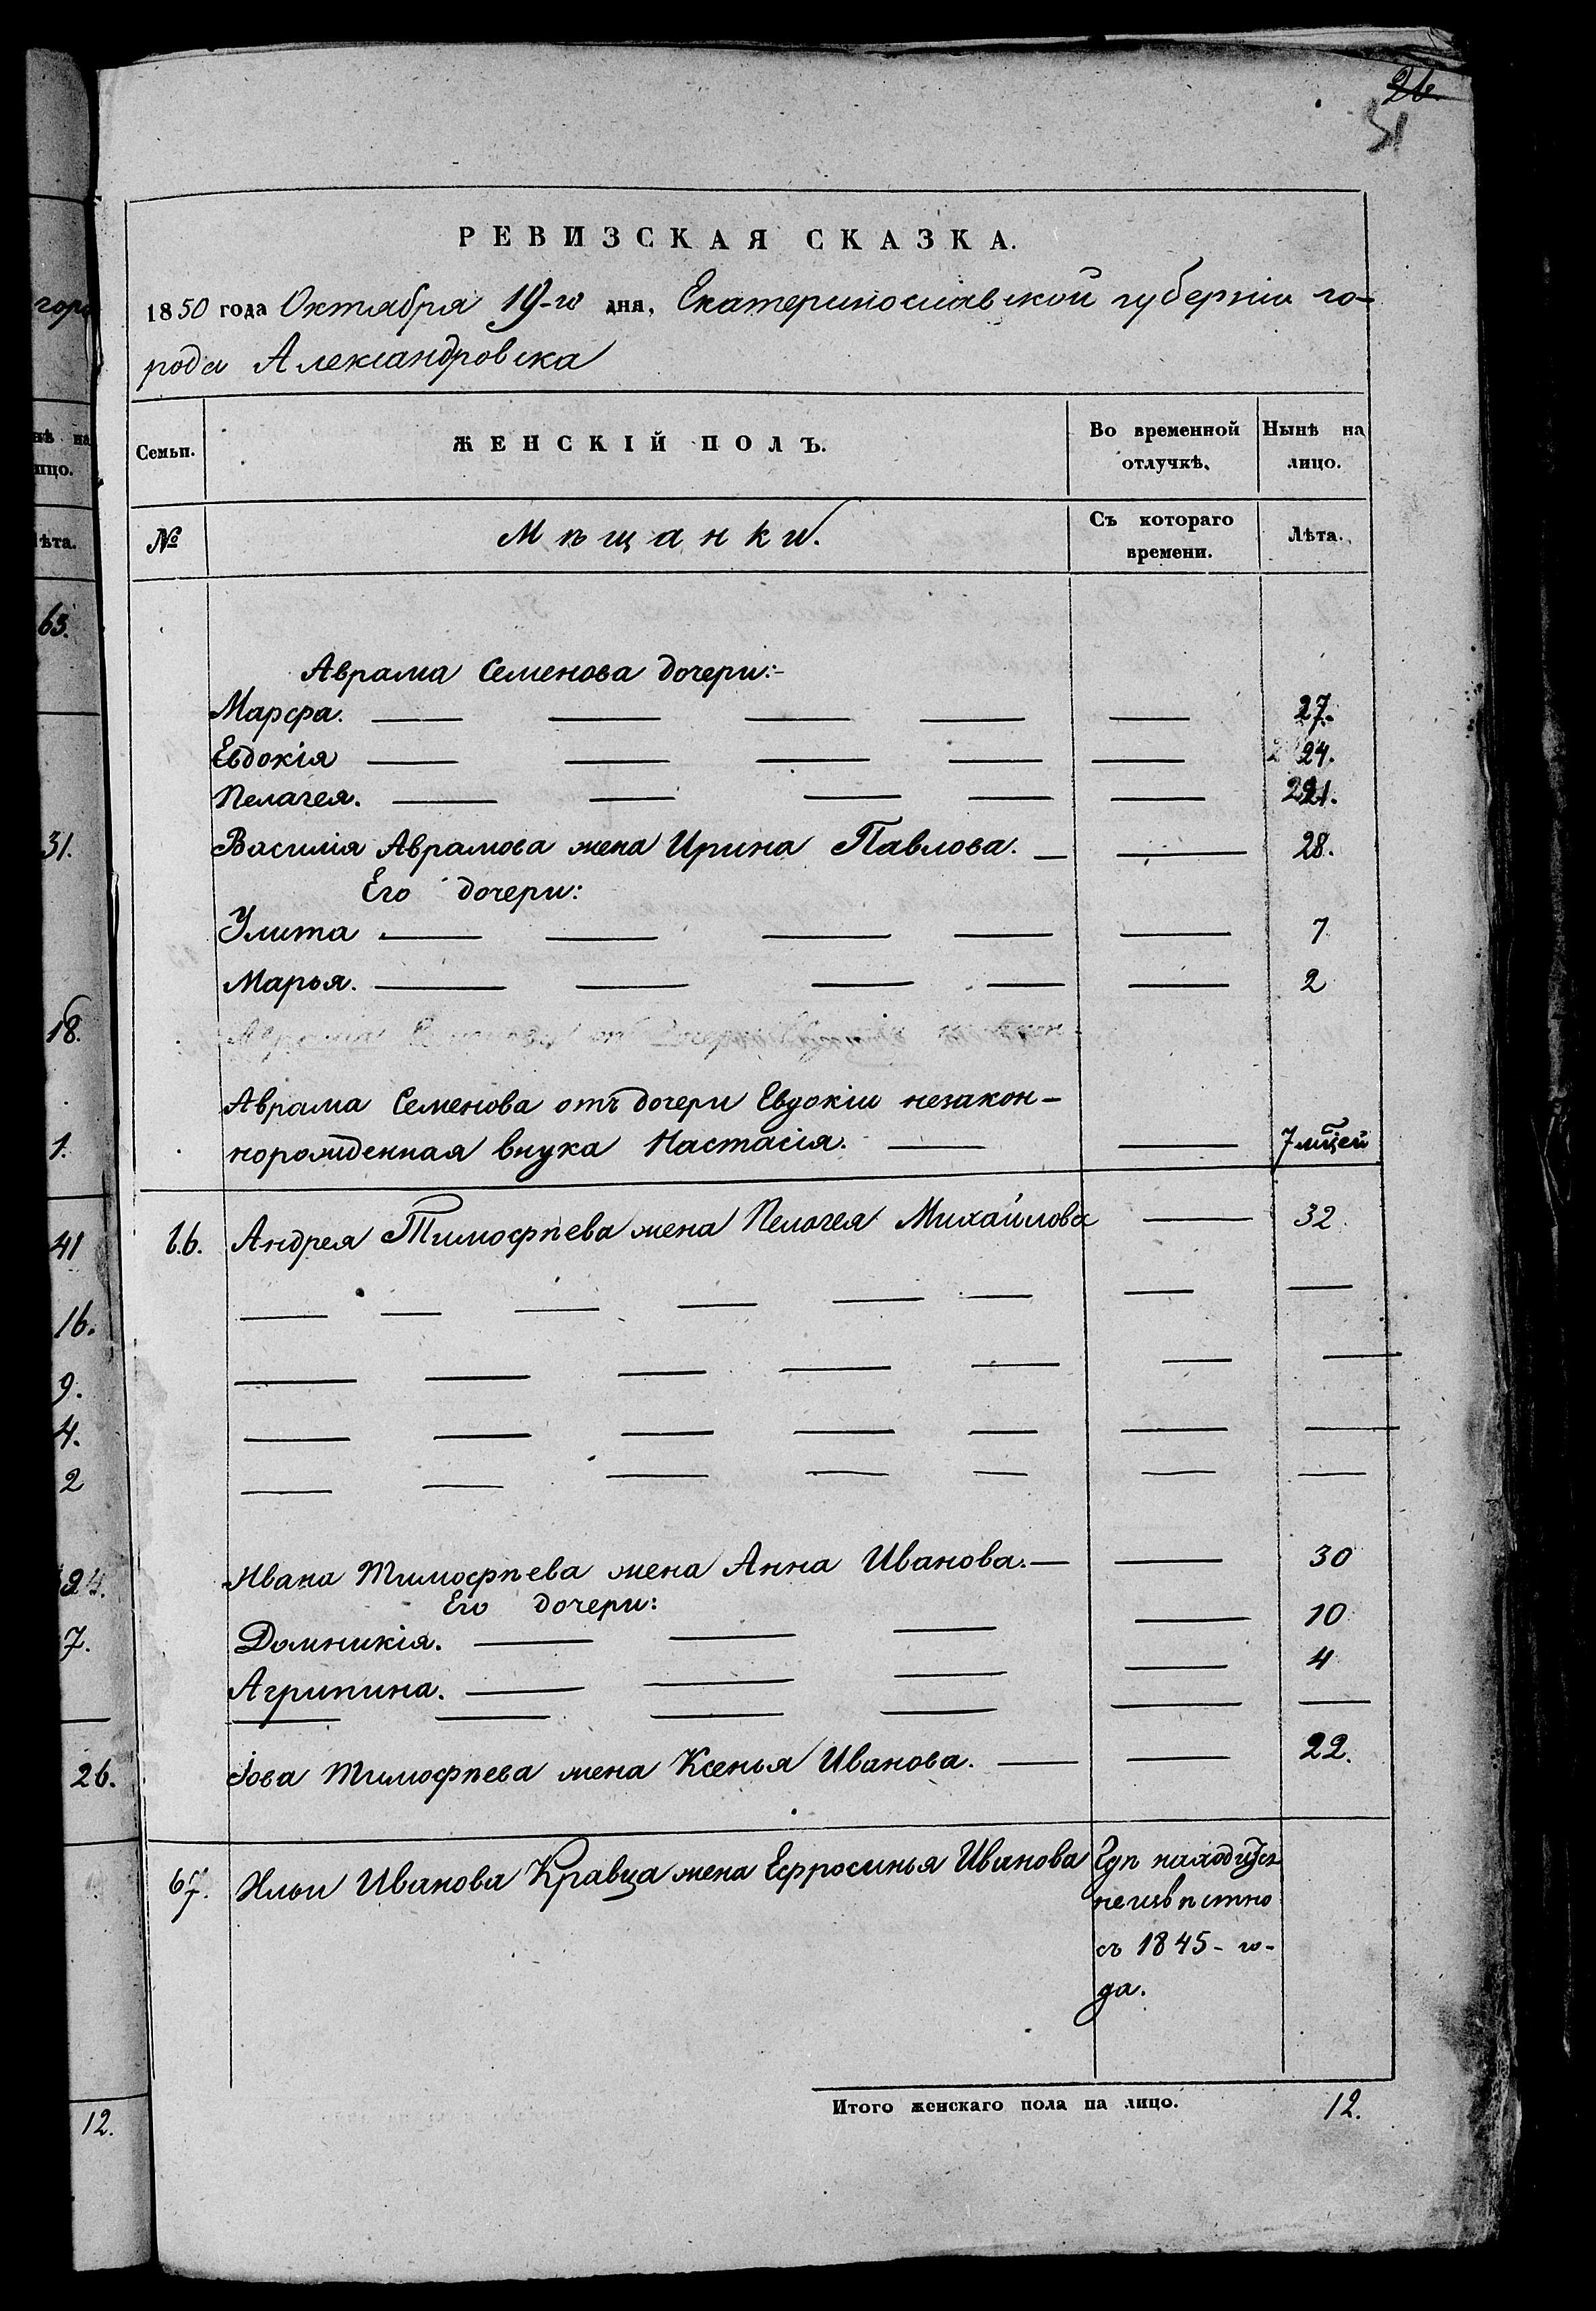 26.
51
РЕВИЗСКАЯ СКАЗКА.
1850 года Октября 19-го дня, Екатеринославской губерніи го-
рода Александровска
Семьи.
ЖЕНСКІЙ ПОЛЪ.
Во временной отлучкѣ.
Нынѣ на лицо.
№
Мѣщанки.
Съ котораго времени.
Лѣта.
Аврама Семенова дочери:-
Марфа. 27.
Евдокія 24.
Пелагея. 21.
Василія Аврамова жена Ирина Павлова. 28.
Его дочери:
Улита 7
Марья. 2
Аврама Семенова отъ дочери Евдокіи незакон-
норожденная внука Настасія. 7 мцей
66. Андрея Тимофѣева жена Пелагея Михайлова 32.
Ивана Тимофѣева жена Анна Иванова. 30
Его дочери:
Домникія. 10
Агрипина. 4
Іова Тимофѣева жена Ксенья Иванова. 22.
67. Ильи Иванова Кравца жена Ефросинья Иванова Гдѣ находится
неизвѣстно
съ 1845-го-
да.
Итого женскаго пола на лицо. 12.
горо
нѣ на
ицо.
лѣта.
63.
31.
18.
1.
41
16.
9.
4.
2
24.
7.
26.
12.